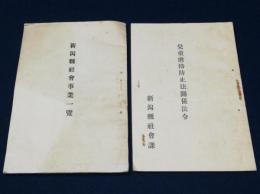 新潟縣社會事業一覽
兒童虐待防止法關係法令
新潟縣社會課